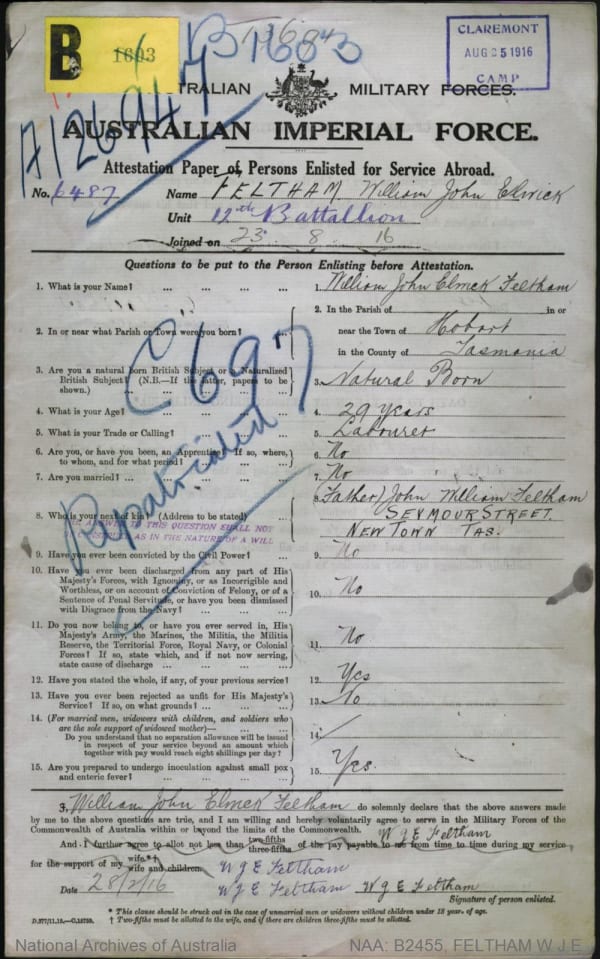 B
1603
B 1603
CLAREMONT
AUG 25 1916
CAMP
A12694
AUSTRALIAN MILITARY FORCES.
AUSTRALIAN IMPERIAL FORCE.
Attestation Paper of Persons Enlisted for Service Abroad.
No. 6487 Name FELTHAM William John Elmick
Unit 12th Battallion
Joined on 23 8 16
Questions to be put to the Person Enlisting before Attestation.
1. What is your Name? ... ... ... ... 1. William John Elmick Feltham
2. In or near what Parish or Town were you born? ... 2. In the Parish of in or
near the Town of Hobart
in the County of Tasmania
3. Are you a natural born British Subject or a Naturalized British Subject? (N.B.—If the latter, papers to be shown.) 3. Natural Born
4. What is your Age? ... 4. 29 years
5. What is your Trade or Calling? ... 5. Labourer
6. Are you, or have you been, an Apprentice? If so, where, to whom, and for what period? 6. No
7. Are you married? ... 7. No
8. Who is your next of kin? (Address to be stated) 8. (Father) John William Feltham
SEYMOUR STREET.
NEW TOWN TAS.
THE ANSWER TO THIS QUESTION SHALL NOT
AS IN THE NATURE OF A WILL
C697
Repatriated
9. Have you ever been convicted by the Civil Power? ... 9. No
10. Have you ever been discharged from any part of His
Majesty's Forces, with Ignominy, or as Incorrigible and
Worthless, or on account of Conviction of Felony, or of a
Sentence of Penal Servitude, or have you been dismissed
with Disgrace from the Navy? ... 10. No
11. Do you now belong to, or have you ever served in, His
Majesty's Army, the Marines, the Militia, the Militia
Reserve, the Territorial Force, Royal Navy, or Colonial
Forces? If so, state which, and if not now serving,
state cause of discharge ... 11. No
12. Have you stated the whole, if any, of your previous service? 12. Yes
13. Have you ever been rejected as unfit for His Majesty's
Service? If so, on what grounds? ... 13. No
14. (For married men, widowers with children, and soldiers who
are the sole support of widowed mother)—
Do you understand that no separation allowance will be issued
in respect of your service beyond an amount which
together with pay would reach eight shillings per day? 14.
15. Are you prepared to undergo inoculation against small pox
and enteric fever? ... 15. Yes.
I, William John Elmick Feltham do solemnly declare that the above answers made
by me to the above questions are true, and I am willing and hereby voluntarily agree to serve in the Military Forces of the
Commonwealth of Australia within or beyond the limits of the Commonwealth.
W J E Feltham
And I further agree to allot not less than two-fifths three-fifths of the pay payable to me from time to time during my service
for the support of my wife*† wife and children
W J E Feltham
Date 28/2/16 W J E Feltham W J E Feltham
Signature of person enlisted.
* This clause should be struck out in the case of unmarried men or widowers without children under 18 years of age.
† Two-fifths must be allotted to the wife, and if there are children three-fifths must be allotted.
D.377/11.15.—C.18759.
National Archives of Australia NAA: B2455, FELTHAM W J E